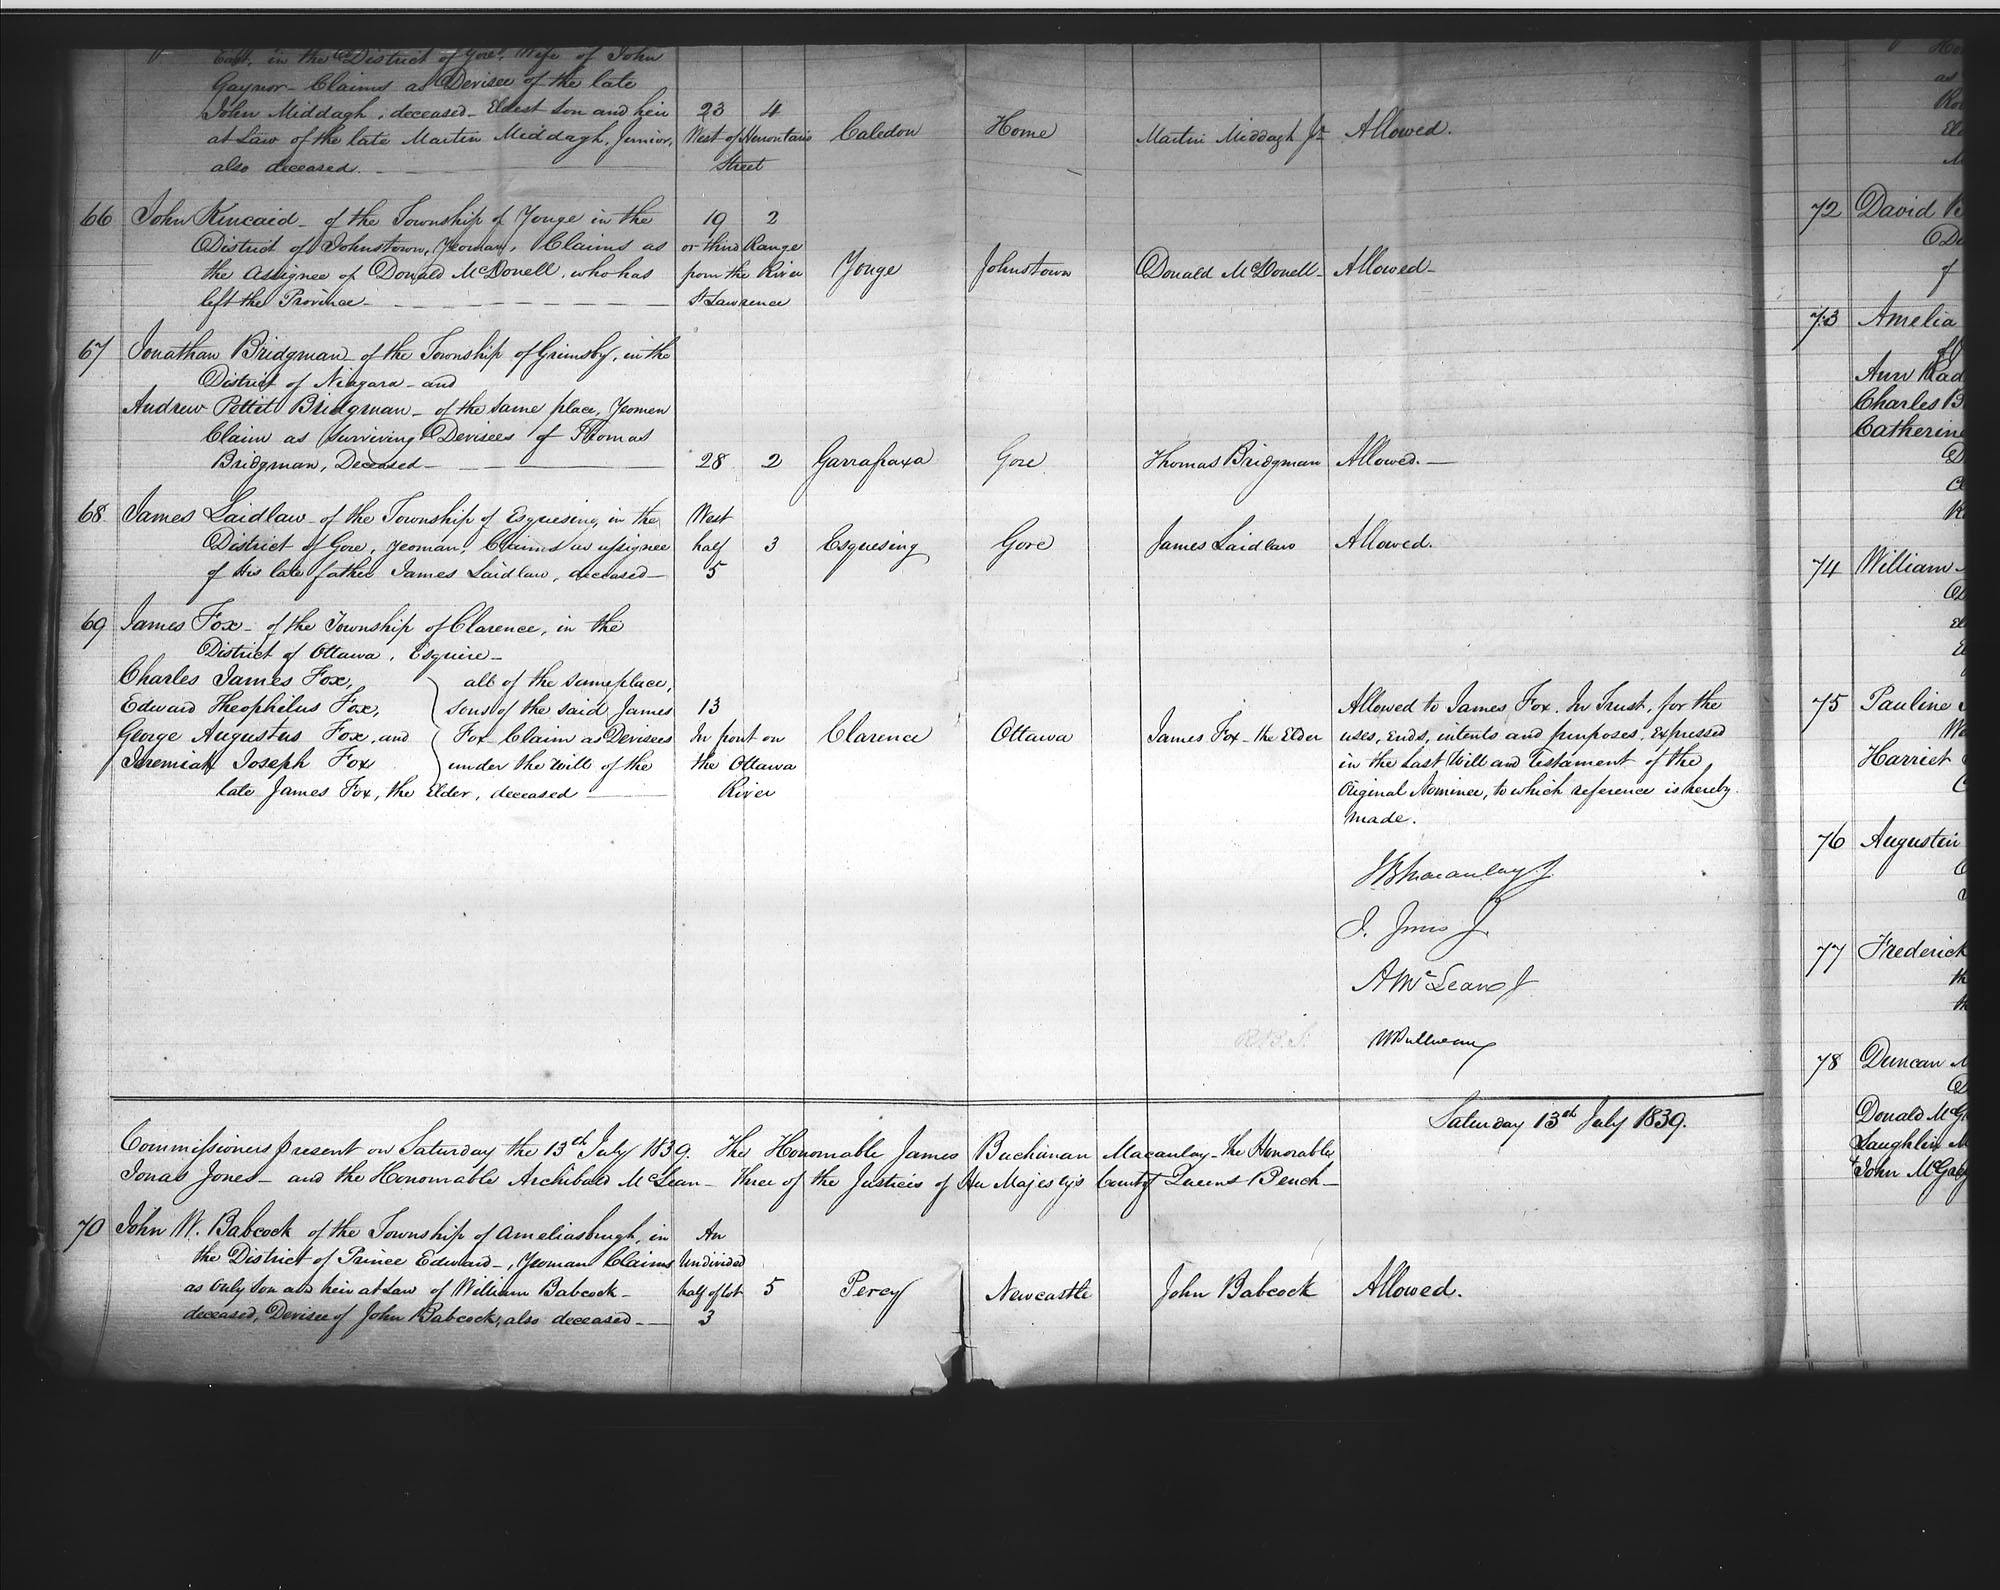 East, in the District of Gore, Wife of John
Gaynor - Claims as Devisee of the late
John Middagh, deceased - Eldest son and heir 23 4
at Law of the late Martin Middagh, Junior, West of Hurontario Caledon Home Martin Middagh Jr Allowed.
also deceased. Street
66 John Kincaid - of the Township of Yonge in the 19 2
District of Johnstown, Yeoman, Claims as or third Range
the assignee of Donald McDonell, who has from the River Yonge Johnstown Donald McDonell - Allowed -
left the Province - St Lawrence
67 Jonathan Bridgman - of the Township of Grimsby, in the
District of Niagara - and
Andrew Pettit Bridgman - of the same place, Yeomen
Claim as surviving Devisees of Thomas
Bridgman, Deceased - 28 2 Garrafraxa Gore Thomas Bridgman Allowed. -
68 James Laidlaw - of the Township of Esquesing, in the West
District of Gore, yeoman, Claims as assignee half 3 Esquesing Gore James Laidlaw Allowed.
of His late father James Laidlaw, deceased - 5
69 James Fox - of the Township of Clarence, in the
District of Ottawa, Esquire -
Charles James Fox, all of the same place,
Edward Theophilus Fox, sons of the said James 13 Allowed to James Fox. In Trust, for the
George Augustus Fox, and Fox - Claim as Devisees In front on Clarence Ottawa James Fox - the Elder uses, ends, intents and purposes, expressed
Jeremiah Joseph Fox under the will of the the Ottawa in the Last Will and Testament of the
late James Fox, the Elder, deceased River Original Nominee, to which reference is hereby
made.
J B Macaulay J.
J. Jones J.
A McLean J
Saturday 13th July 1839.
Commissioners present on Saturday the 13th July 1839. The Honorable James Buchanan Macaulay - the Honorable
Jonas Jones - and the Honourable Archibald McLean - three of the Justices of Her Majesty's Court of Queens Bench -
70 John W. Babcock of the Township of Ameliasburgh, in An
the District of Prince Edward -, Yeoman Claims Undivided
as Only Son and heir at Law of William Babcock - half of lot 5 Percy Newcastle John Babcock Allowed.
deceased, Devisee of John Babcock, also deceased - 3
72 David
73 Amelia
Ann
Charles
Catherine
74 William
75 Pauline
Harriet
76 Augustin
77 Frederick
78 Duncan
Donald
Laughlin
John